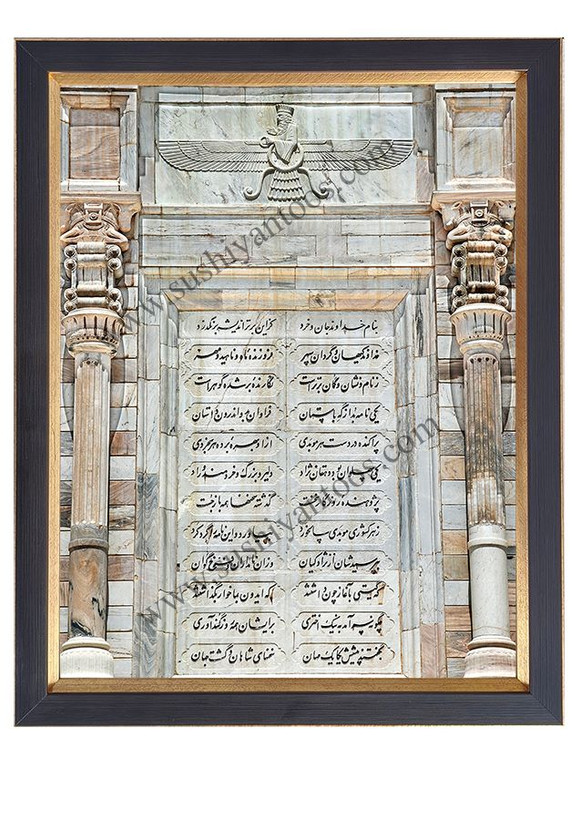 بنام خداوند جان و خرد کزین برتر اندیشه برنگذرد
خداوند کیهان و گردان سپهر فروزنده ماه و ناهید و مهر
ز نام و نشان و گمان برتر است نگارندهٔ بر شده گوهر است
یکی نامه بد از گه باستان فراوان بدو اندرون داستان
پراکنده در دست هر موبدی ازو بهرهٔ برده هر بخردی
یکی پهلوان بود دهقان نژاد دلیر و بزرگ و خردمند و راد
پژوهنده روزگار نخست گذشته سخنها همه باز جست
ز هر کشوری موبدی سالخورد بیاورد و این نامه را گرد کرد
بپرسیدشان از نژاد کیان وزان نامداران فرخ گوان
که گیتی بآغاز چون داشتند که ایدون بما خوار بگذاشتند
چگونه سر آمد به نیک اختری برایشان همه روز گندآوری
بگفتند پیشش یکایک مهان سخنهای شاهان و گشت جهان
www.sushiyantoos.com
www.sushiyantoos.com